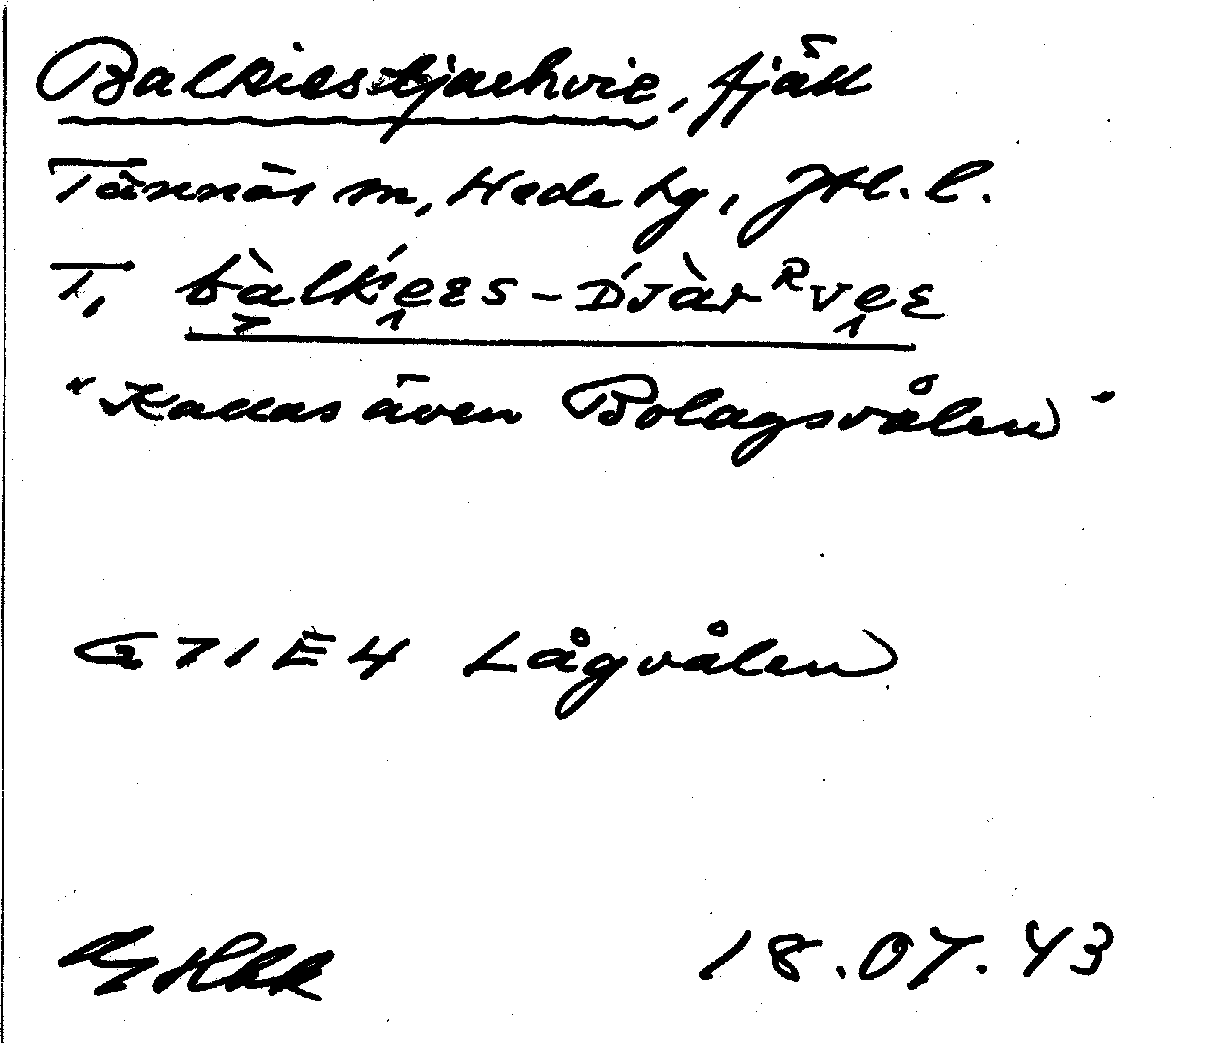 Balkiestjaehvie, fjäll
Tännäs sn, Hede tg, Jtl. l.
T, bàlk'ees-DJàrRvee
"Kallas även Bolagsvålen"
G 71 E4 Lågvålen
18.07.43